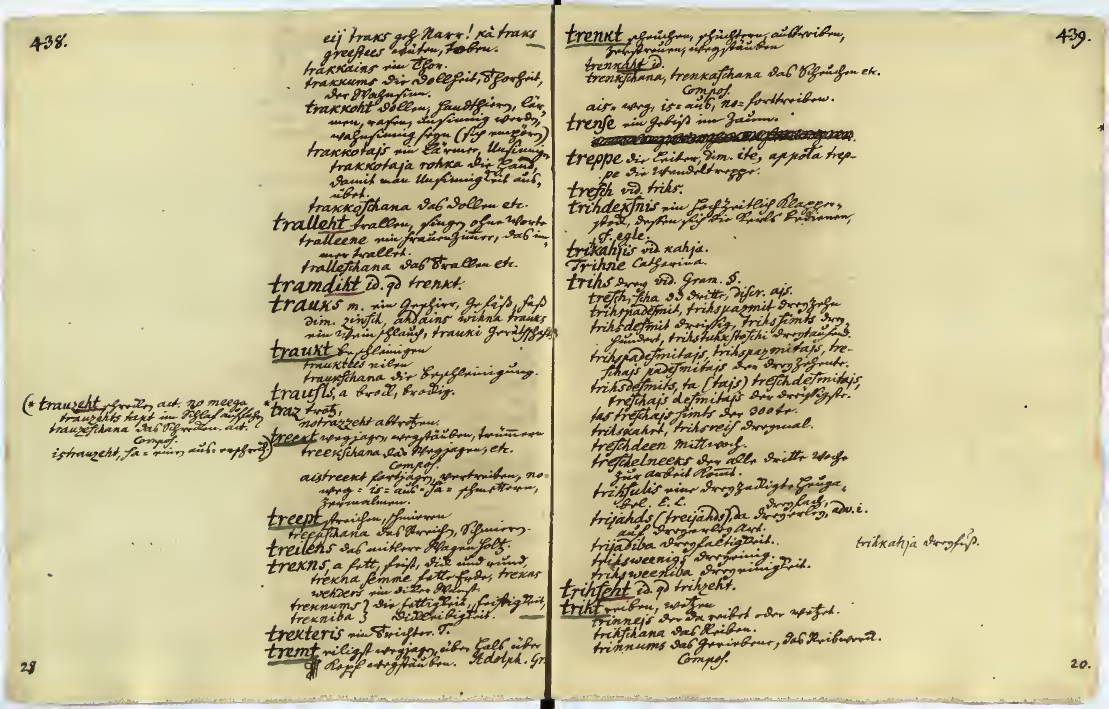 438.
eij traks geh Narr! kà traks
greestees wüten, toben.
trakkains ein Thor.
trakkums die Tollheit, Thorheit,
der Wahnsinn.
trakkoht tollen, handthiern, lär-
men, rasen, unsinnig werden,
wahnsinnig seyn (sich empörn)
trakkotajs ein Lärmer, Unsinnig
trakkotaja rohka die Hand,
damit man Unsinnigkeit aus-
übet.
trakkoschana das Tollen etc.
tralleht trallen, singen ohne Worte
tralleene ein Frauenzimer, das im-
mer trallet.
tralleschana das Trallen etc.
tramdiht id. qd trenkt.
trauks m. ein Geschirr, Gefäß, Faß
dim. zinsch, ahdains wihna trauks
ein Weinschlauch, trauki Geräthschaft
traukt beschleinigen
trauktees eilen
traukschana die Beschleinigung.
trausls, a
traz trotz,
notrazzeht abtrotzen.
treekt wegjagen, wegstäuben, trümmern
treekschana das Wegjagen, etc.
Compos.
aistreekt fortjagen, vertreiben, no-
weg- is- aus- sa- schmettern,
zermalmen.
treept streichen, schmieren
treepschana das Streich, Schmiern.
treilens das mittlere Wagenholtz.
trekns, a fett, feist, dick und rund,
trekna semme fette Erde, trekns
wehders ein dicker Wanst.
treknums } die Fettigkeit, Feistigkeit,
trekniba } Dickleibigkeit.
trekteris ein Trichter. T.
tremt eiligst wegjagen, über Hals über
Kopf wegstäuben. Adolph. Gr.
(* trauzeht schrecken act. no meega
trauzehts tapt im Schlaf
trauzeschana das Schrecken. act.
Compos.
istrauzeht, sa-
28
439.
trenkt scheuchen, schüchtern, austreiben,
zerstreuen, wegstäuben
trennkaht id.
trenkschana, trenkaschana das Scheuchen etc.
Compos.
ais- weg, is- aus, no- forttreiben.
trense ein Gebiß im Zaum.
treppe die Leiter, Dim. ite, appola trep-
pe die Wendeltreppe.
tresch vid. trihs.
trihdeksnis ein hochzeitlich Klapper-
stock, dessen sich die Kerls bedienen,
f. egle.
trikahjis vid kahja.
Trihne Catharina.
trihs drey vid. Gram. §.
tresch, scha der dritte, discr. ajs.
trihspadesmit, trihspazmit dreyzehn
trihsdesmit dreißig, trihssimts drey
hundert, trihstuhkstoschi dreytausend.
trihspadesmitajs, trihspazmitajs, tre-
schajs padesmitajs der dreyzehnte.
trihsdesmits, ta (tajs) treschdesmitajs,
treschajs desmitajs der dreißigste.
tas treschajs simts der 300te.
trihskahrt, trihsreis dreymal.
treschdeen Mittwoch.
treschelneeks der alle dritte Woche
zur Arbeit komt.
trihsulis eine dreyzackigte Heuga-
bel. E. L.
trijahds (treijahds), da dreyerley, adv. i.
auf dreyerley Art.
trijadiba dreyfaltigkeit.
trihsweenigs dreyeinig.
trihsweeniba dreyeinigkeit.
trihkahja dreyfuß.
trihseht id. qd trihzeht.
triht reiben, wetzen
trinnejs der da reibet oder wetzet.
trihschana das Reiben.
trinnums das Geriebene, das Reibwerk.
Compos.
20.